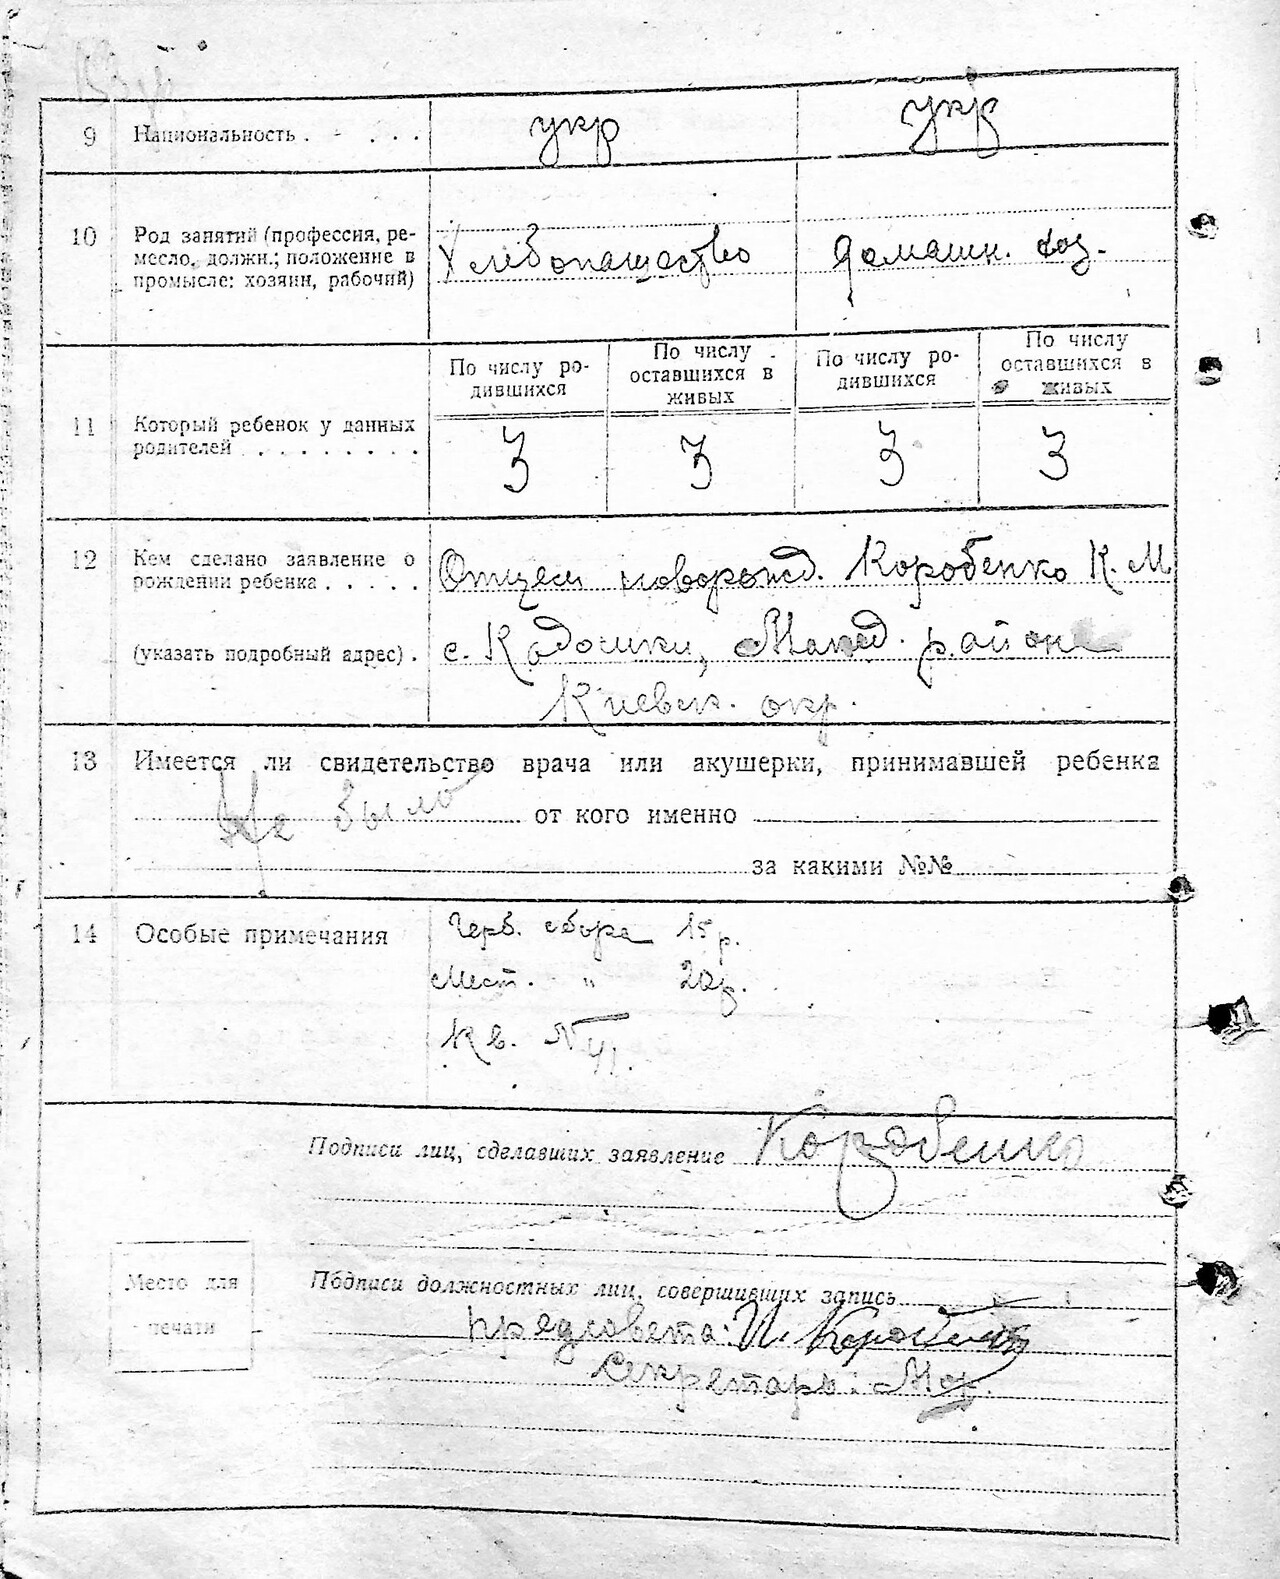 9 Национальность . - . . . укр укр
10 Род занятий (профессия, ре-
месло, должн.; положение в
промысле: хозяин, рабочий)
Хлебопашество домашн. хоз.
По числу ро-
дившихся
По числу
оставшихся в
живых
По числу ро-
дившихся
По числу
оставшихся в
живых
11 Который ребенок у данных
родителей . . . . . . . .
3 3 3 3
12 Кем сделано заявление о
рождении ребенка . . . . .
Отцем новорожд. Коробенко К. М
(указать подробный адрес) .
с. Кодошки, района
Киевск. окр.
13 Имеется ли свидетельство врача или акушерки, принимавшей ребенка
Не было от кого именно
за какими №№
14 Особые примечания
Герб. сбора 15 р.
Мест. " 20
Кв. №
Подписи лиц, сделавших заявление Коробенко
Место для
печати
Подписи должностных лиц, совершивших запись
предсовета: И. Коробенко
Секретарь: